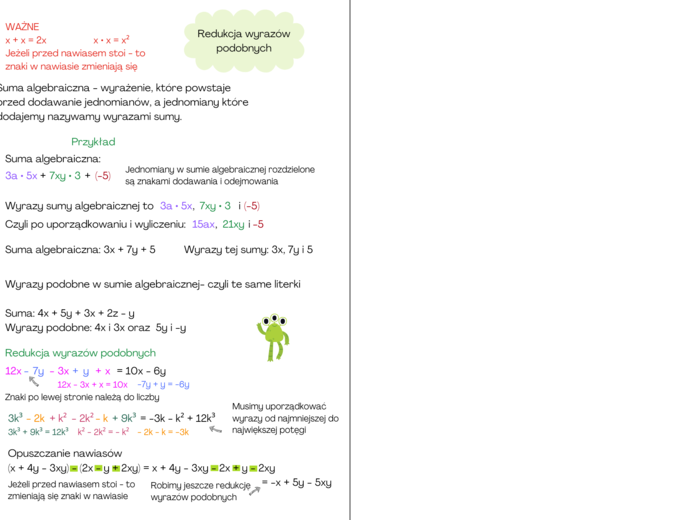 WAŻNE
x + x = 2x x • x = x²
Jeżeli przed nawiasem stoi - to
znaki w nawiasie zmieniają się
Redukcja wyrazów
podobnych
Suma algebraiczna - wyrażenie, które powstaje
przed dodawanie jednomianów, a jednomiany które
dodajemy nazywamy wyrazami sumy.
Przykład
Suma algebraiczna:
3a • 5x + 7xy • 3 + (-5)
Jednomiany w sumie algebraicznej rozdzielone
są znakami dodawania i odejmowania
Wyrazy sumy algebraicznej to 3a • 5x, 7xy • 3 i (-5)
Czyli po uporządkowaniu i wyliczeniu: 15ax, 21xy i -5
Suma algebraiczna: 3x + 7y + 5 Wyrazy tej sumy: 3x, 7y i 5
Wyrazy podobne w sumie algebraicznej- czyli te same literki
Suma: 4x + 5y + 3x + 2z - y
Wyrazy podobne: 4x i 3x oraz 5y i -y
Redukcja wyrazów podobnych
12x - 7y - 3x + y + x = 10x - 6y
12x - 3x + x = 10x -7y + y = -6y
Znaki po lewej stronie należą do liczby
3k³ - 2k + k² - 2k² - k + 9k³ = -3k - k² + 12k³
3k³ + 9k³ = 12k³ k² - 2k² = - k² - 2k - k = -3k
Musimy uporządkować
wyrazy od najmniejszej do
największej potęgi
Opuszczanie nawiasów
(x + 4y - 3xy) - (2x - y + 2xy) = x + 4y - 3xy - 2x + y - 2xy
Jeżeli przed nawiasem stoi - to
zmieniają się znaki w nawiasie
Robimy jeszcze redukcję
wyrazów podobnych
= -x + 5y - 5xy